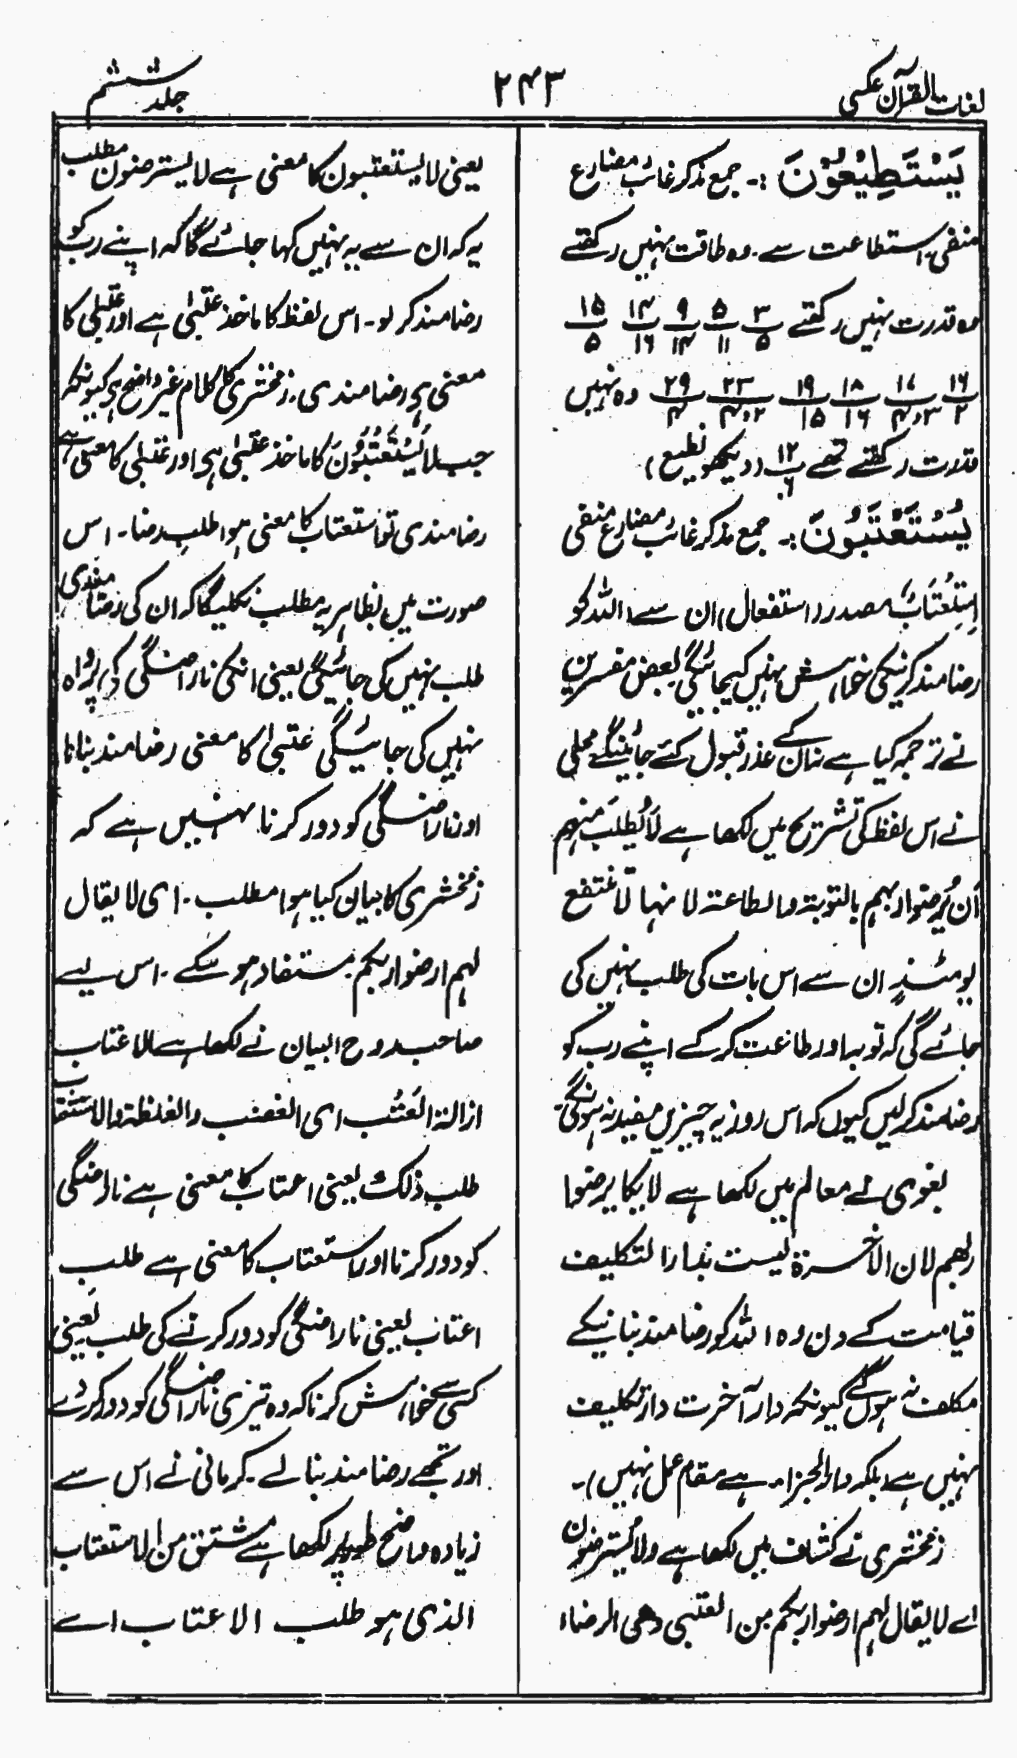 لغات القرآن عکسی
۲۴۳
جلد ششم
یَسْتَطِیْعُوْنَ :۔ جمع مذکر غائب مضارع
منفی۔ استطاعت سے۔ وہ طاقت نہیں رکھتے
وہ قدرت نہیں رکھتے ۳/۵ ۵/۱۱ ۹/۱۴ ۱۴/۱۶ ۱۵/۵
۱۶/۲ ۱۷/۳،۴ ۱۸/۱۶ ۱۹/۱۵ ۲۳/۲،۴ ۲۹/۴ وہ نہیں
قدرت رکھتے تھے ۱۲/۶ (دیکھو نطیع)
یُسْتَعْتَبُوْنَ :۔ جمع مذکر غائب مضارع منفی
اِسْتِعْتَابٌ مصدر (استفعال) ان سے اللہ کو
رضامند کرنیکی خواہش نہیں کیجائیگی بعض مفسرین
نے ترجمہ کیا ہے نہ ان کے عذر قبول کئے جائینگے محلی
نے اس لفظ کی تشریح میں لکھا ہے لَا یُطلَب مِنہم
اَن یُرضوا ربہم بالتوبۃ والطاعۃ لانہا لا تنتفع
یومئذٍ ان سے اس بات کی طلب نہیں کی
جائے گی کہ توبہ اور طاعت کر کے اپنے رب کو
رضامند کرلیں کیوں کہ اس روز یہ چیزیں مفید نہ ہونگی۔
بغوی نے معالم میں لکھا ہے لا یکا یرضوا
ربھم لان الآخرۃ لیست بدار التکلیف
قیامت کے دن وہ اللہ کو رضامند بنانیکے
مکلف نہ ہوں گے کیونکہ دار آخرت دار تکلیف
نہیں ہے (بلکہ دار الجزاء ہے مقام عمل نہیں)۔
زمخشری نے کشاف میں لکھا ہے ولا یسترضون
اے لا یقال لہم ارضوا ربکم من العتبی وھی الرضاء
یعنی لا یستعتبون کا معنی ہے لا یسترضون مطلب
یہ کہ ان سے یہ نہیں کہا جائے گا کہ اپنے رب کو
رضامند کر لو۔ اس لفظ کا ماخذ عتبیٰ ہے اور عتبیٰ کا
معنی ہے رضامندی۔ زمخشری کا کلام غیر واضح ہے کیونکہ
جب لَا یُسْتَعْتَبُوْنَ کا ماخذ عتبیٰ ہے اور عتبیٰ کا معنی ہے
رضامندی تو استعتاب کا معنی ہوا طلبِ رضا۔ اس
صورت میں بظاہر یہ مطلب نکلیگا کہ ان کی رضامندی
طلب نہیں کی جائیگی یعنی انکی ناراضگی کی پرواہ
نہیں کی جائیگی عتبیٰ کا معنی رضامند بنانا
اور ناراضگی کو دور کرنا نہیں ہے کہ
زمخشری کا بیان کیا ہوا مطلب۔ ای لا یقال
لہم ارضوا ربکم مستفاد ہو سکے۔ اس لیے
صاحب روح البیان نے لکھا ہے الاعتاب
ازالۃ العَتْب ای الغضب والغلظۃ والاستعتاب
طلب ذلک یعنی اعتاب کا معنی ہے ناراضگی
کو دور کرنا اور استعتاب کا معنی ہے طلب
اعتاب یعنی ناراضگی کو دور کرنے کی طلب یعنی
کسی سے خواہش کرنا کہ وہ تیری ناراضگی کو دور کر دے
اور تجھے رضامند بنا لے۔ کرمانی نے اس سے
زیادہ واضح طور پر لکھا ہے مشتق من الاستعتاب
الذی ھو طلب الاعتاب اے